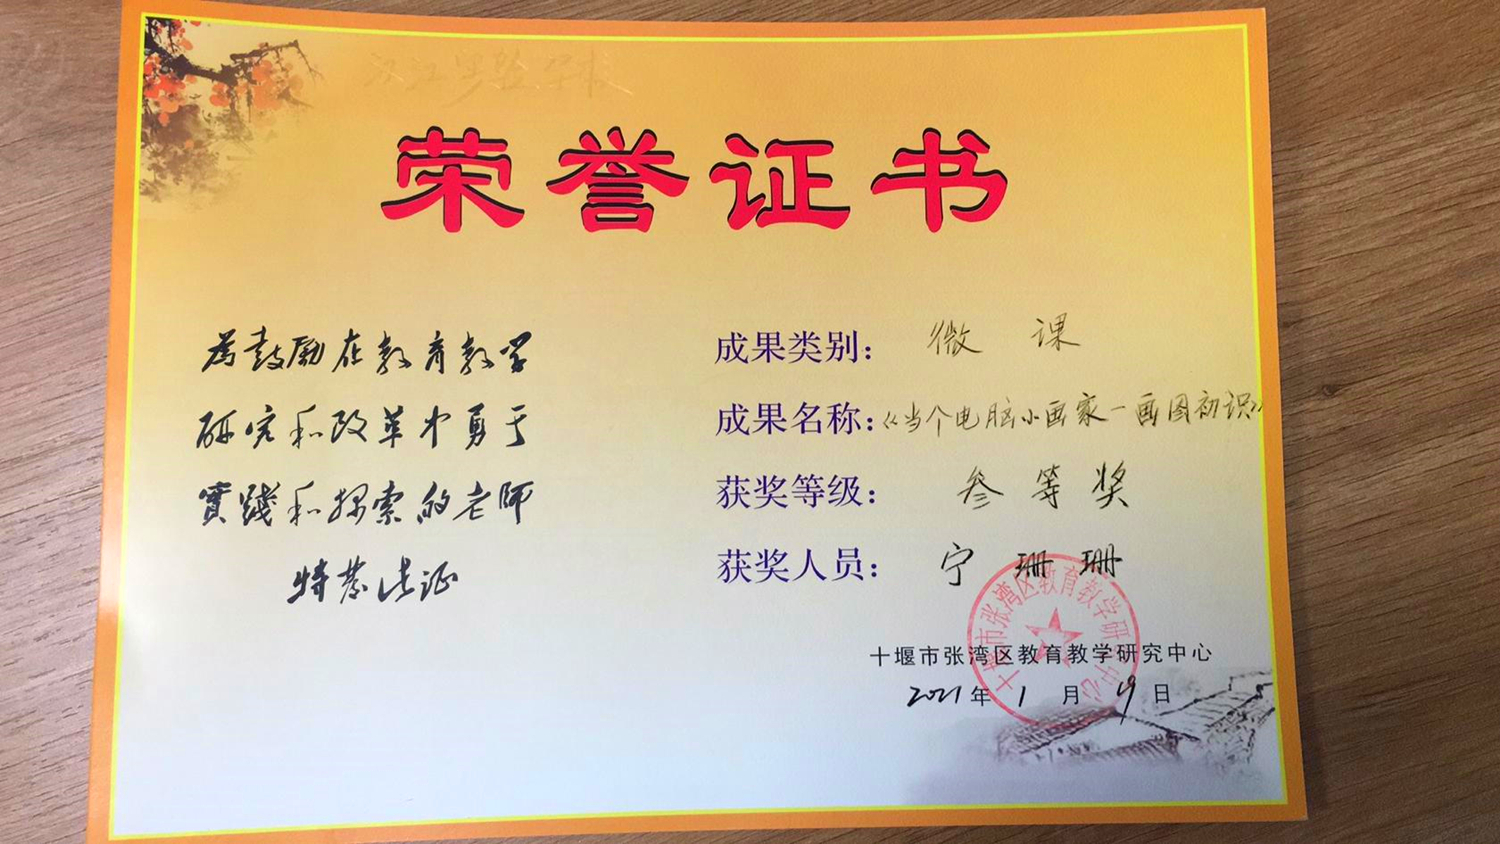 汉江实验学校
荣誉证书
为鼓励在教育教学
研究和改革中勇于
實踐和探索的老师
特发此证
成果类别：微 课
成果名称：《当个电脑小画家一画图初识》
获奖等级：叁 等 奖
获奖人员：宁 珊 珊
十堰市张湾区教育教学研究中心
十堰市张湾区教育教学研究中心
2021年 1 月 9 日